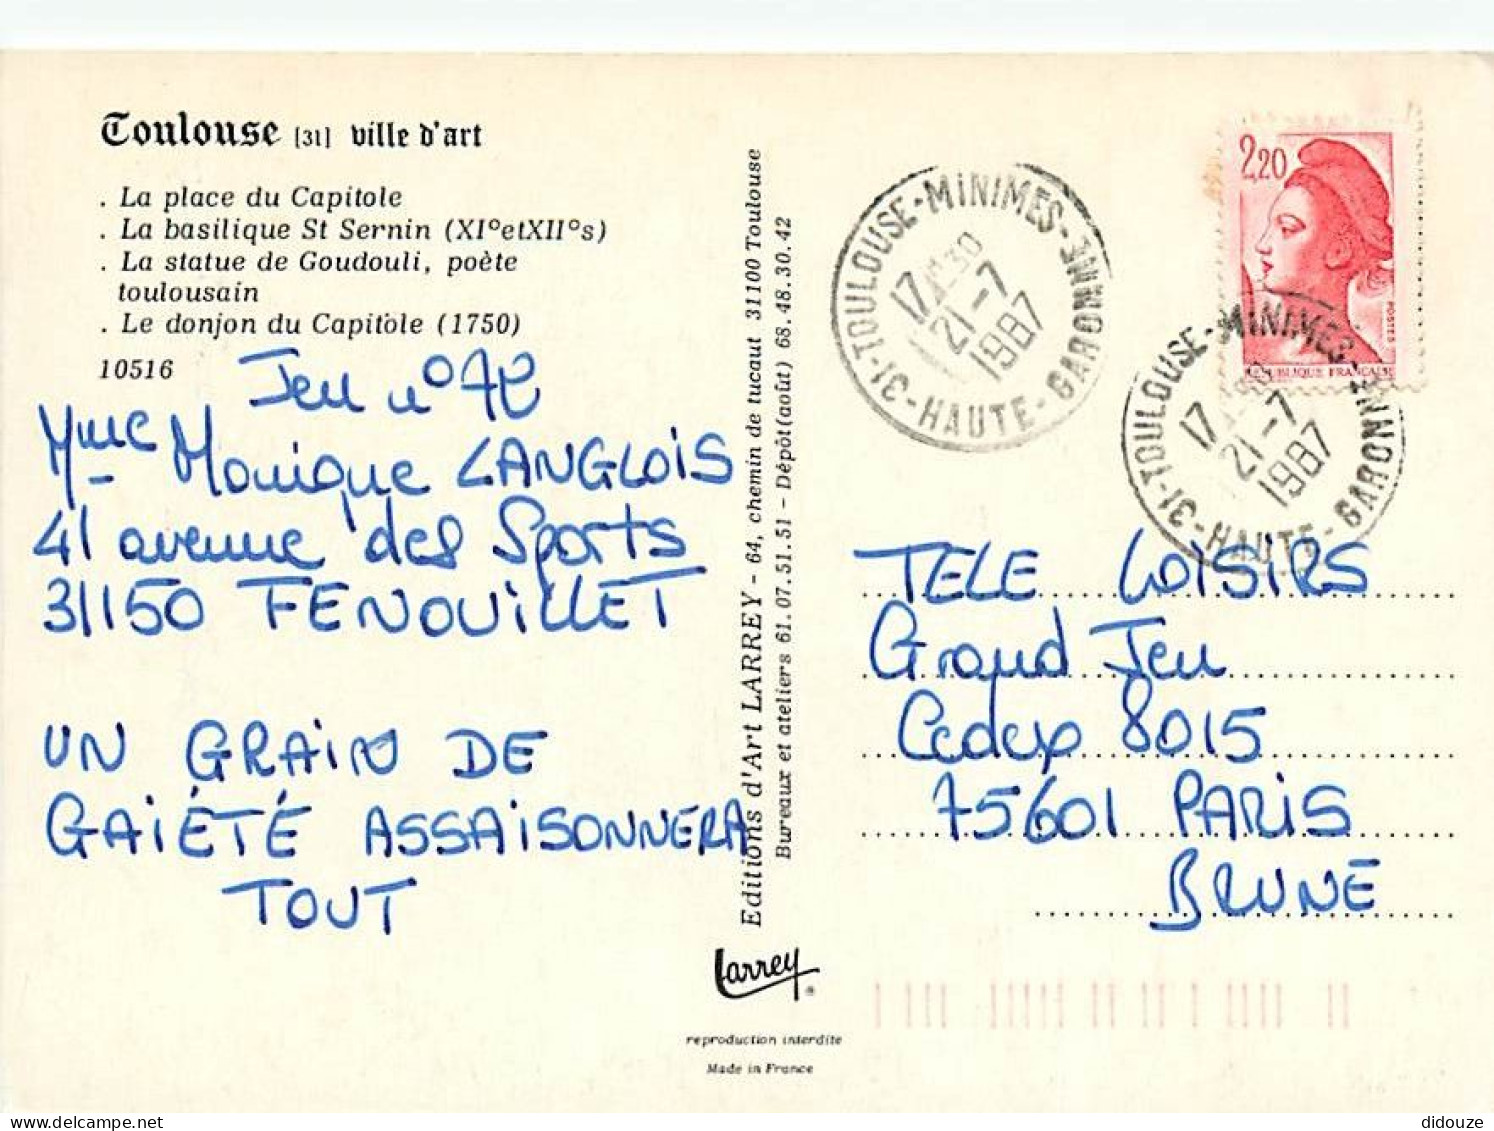 Toulouse [31] ville d'art
. La place du Capitole
. La basilique St Sernin (XI°etXII°s)
. La statue de Goudouli, poète
toulousain
. Le donjon du Capitole (1750)
10516
Jeu n° 72
Mme Monique LANGLOIS
41 avenue des Sports
31150 FENOUILLET
UN GRAIN DE
GAIÉTÉ ASSAISONNERA
TOUT
Editions d'Art LARREY - 64, chemin de tucaut 31100 Toulouse
Bureaux et ateliers 61.07.51.51 - Dépôt(août) 68.48.30.42
Larrey
reproduction interdite
Made in France
31-TOULOUSE-MINIMES-
HAUTE-GARONNE
17 H30
21-7
1987
2,20
POSTES
REPUBLIQUE FRANCAISE
31-TOULOUSE-MINIMES
HAUTE-GARONNE
17
21-7
1987
TELE LOISIRS
Grand Jeu
Cedex 8015
75601 PARIS
BRUNE
didouze